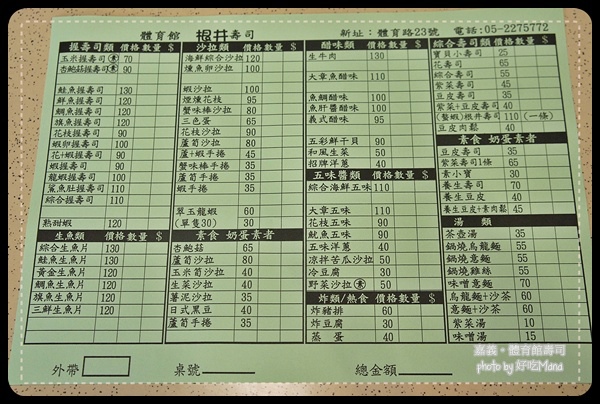 體育館 根井壽司 新址：體育路23號 電話：05-2275772
握壽司類 價格 數量 $
玉米握壽司 素 70
杏鮑菇握壽司 素 90
鮭魚握壽司 110
鮮魚握壽司 110
鯛魚握壽司 110
旗魚握壽司 110
花枝握壽司 90
蝦卵握壽司 100
花+蝦握壽司 90
蝦握壽司 90
龍蝦握壽司 100
鯊魚肚握壽司 110
綜合握壽司 110
熟甜蝦 120
生魚類 價格 數量 $
綜合生魚片 130
鮭魚生魚片 130
黃金生魚片 120
鯛魚生魚片 120
旗魚生魚片 120
三鮮生魚片 110
沙拉類 價格 數量 $
海鮮綜合沙拉 120
燻魚卵沙拉 100
蝦沙拉 100
煙燻花枝 95
蟹味棒沙拉 90
三色蛋 65
花枝沙拉 90
蘆筍沙拉 80
蘆+蝦手捲 45
蟹味棒手捲 35
蘆蝦手捲 45
蝦手捲 35
翠玉龍蝦 60
(單隻30) 30
素食 奶蛋素者
杏鮑菇 65
蘆筍沙拉 80
玉米筍沙拉 40
生菜沙拉 40
薯泥沙拉 35
日式黑豆 40
蘆筍手捲 35
醋味類 價格 數量 $
生牛肉 130
大章魚醋味 110
魚鯛醋味 110
魚肝醬醋味 100
義式醋味 95
五彩鮮干貝 90
和風生菜 50
招牌洋蔥 40
五味醬類 價格 數量 $
綜合海鮮五味 110
大章五味 110
花枝五味 90
魷魚五味 90
五味洋蔥 40
涼拌苦瓜沙拉 50
冷豆腐 30
野菜沙拉 素 50
炸類/熱食 價格 數量 $
炸豬排 60
炸豆腐 30
蒸蛋 40
綜合壽司類 價格 數量 $
寶貝小壽司 25
花壽司 65
綜合壽司 55
紫菜壽司 45
豆皮壽司 35
紫菜+豆皮壽司 40
(鰲蝦)根井壽司 110 (一條)
豆皮肉鬆 40
素食 奶蛋素者
豆皮壽司 35
紫菜壽司1條 65
素小寶 30
養生壽司 70
養生豆皮 40
養生豆皮+素肉鬆 45
湯類
茶壺湯 35
鍋燒烏龍麵 55
鍋燒意麵 55
鍋燒雞絲 55
味噌意麵 50
烏龍麵+沙茶 60
意麵+沙茶 60
紫菜湯 10
味噌湯 15
外帶 桌號 總金額
嘉義・體育館壽司
photo by 好吃Mana